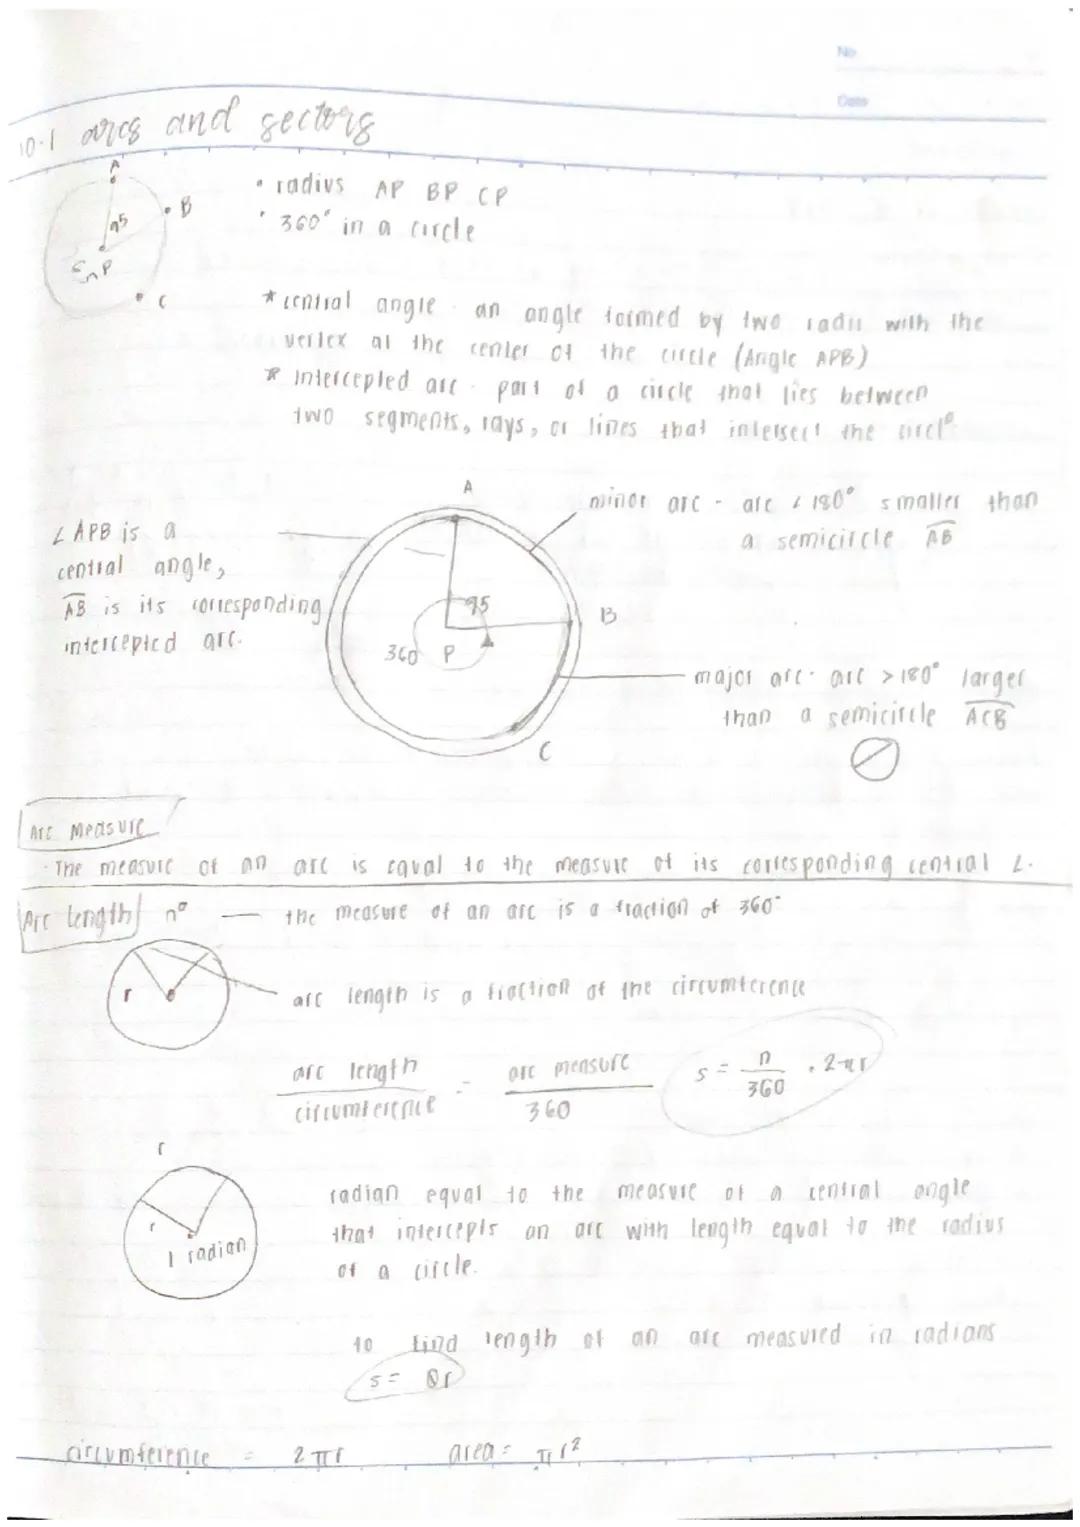 No
Date
10.1 arcs and sectors
A
B
95
P
C
• radius AP BP CP
• 360° in a circle
* central angle - an angle formed by two radii with the
vertex at the center of the circle (Angle APB)
* Intercepted arc - part of a circle that lies between
two segments, rays, or lines that intersect the circle
A
minor arc - arc < 180° smaller than
a semicircle AB
∠APB is a
central angle,
AB is its corresponding
intercepted arc.
95
B
360 P
major arc - arc > 180° larger
than a semicircle ACB
C
Arc Measure
- The measure of an arc is equal to the measure of its corresponding central ∠.
Arc length n° — the measure of an arc is a fraction of 360°
r
arc length is a fraction of the circumference
arc length / circumference = arc measure / 360
s = n / 360 . 2πr
r
r
1 radian
radian equal to the measure of a central angle
that intercepts an arc with length equal to the radius
of a circle.
to find length of an arc measured in radians
s = θr
circumference = 2πr area = πr²